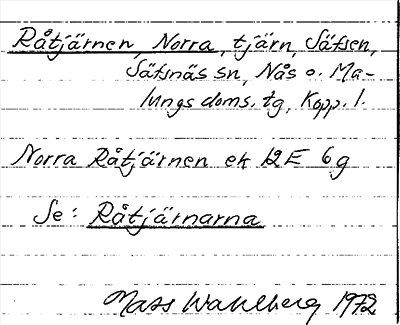 Råtjärnen, Norra, tjärn, Säfsen,
Säfsnäs sn, Nås o. Ma-
lungs doms. tg, Kopp. l.
Norra Råtjärnen ek 12E 6g
Se: Råtjärnarna
Mats Wahlberg 1972